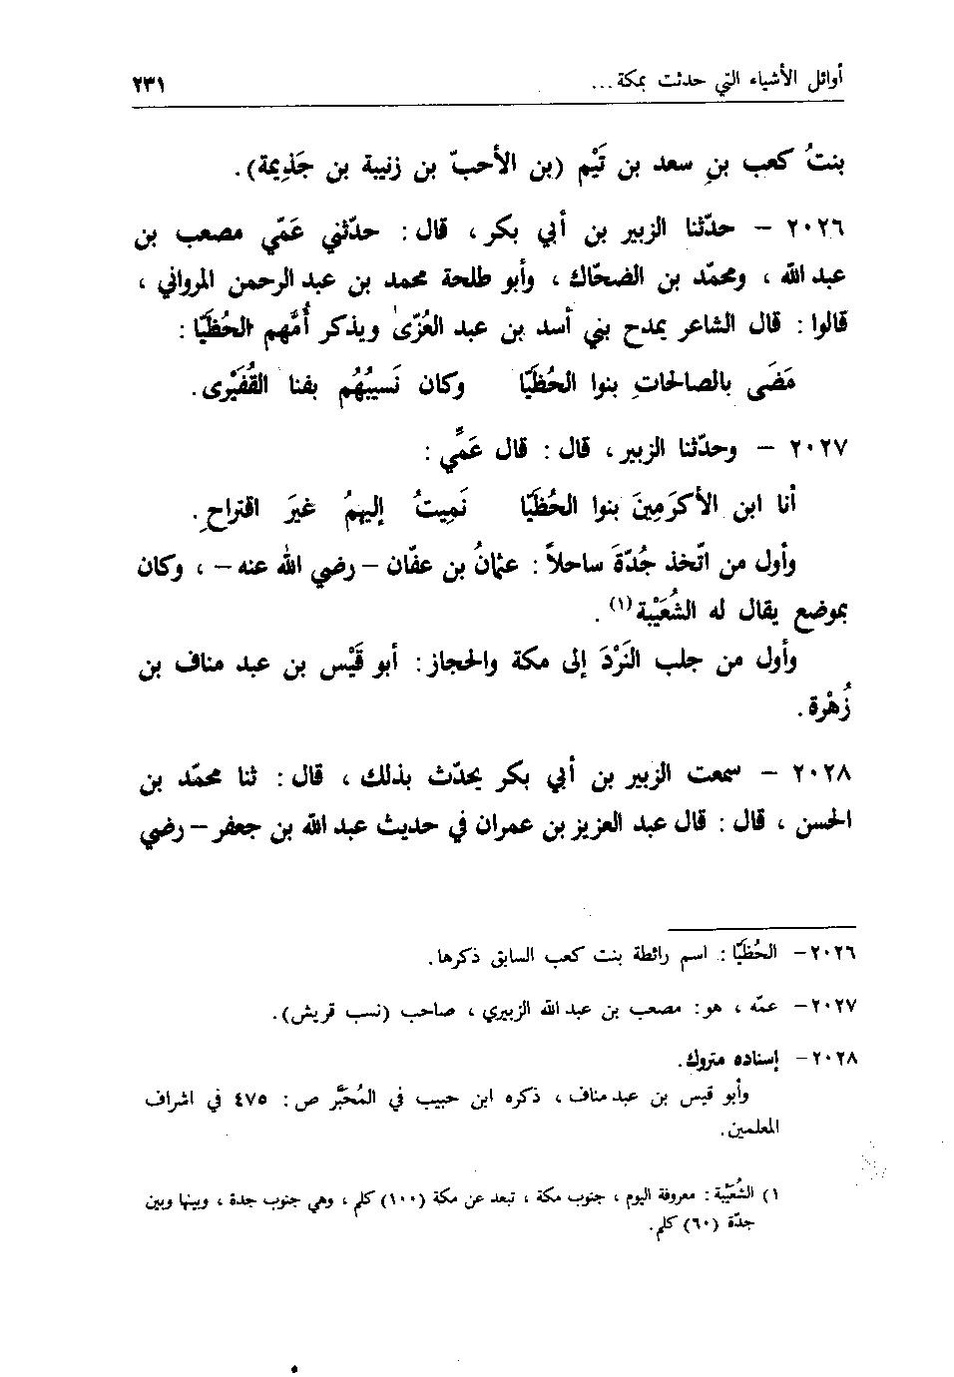 أوائل الأشياء التي حدثت بمكة ... ٢٣١
بنتُ كعب بنِ سعد بن تَيْم (بن الأحبّ بن زنيبة بن جَذِيمة).
٢٠٢٦ – حدّثنا الزبير بن أبي بكر ، قال : حدّثني عَمّي مصعب بن
عبد الله ، ومحمّد بن الضحّاك ، وأبو طلحة محمد بن عبد الرحمن المرواني ،
قالوا : قال الشاعر يمدح بني أسد بن عبد العُزّىٰ ويذكر أُمَّهم الحُظَيّا :
مَضَى بالصالحاتِ بنوا الحُظَيّا وكان نَسيبُهُم بفنا القُفَيْرى.
٢٠٢٧ – وحدّثنا الزبير ، قال : قال عَمِّي :
أنا ابن الأكرَمِينَ بنوا الحُظَيّا نَمِيتُ إليهمُ غيرَ اقتراحِ.
وأول من اتّخذ جُدّةَ ساحلاً : عثمانُ بن عفّان – رضي الله عنه – ، وكان
بموضع يقال له الشُعَيْبة(١) .
وأول من جلب النَرْدَ إلى مكة والحجاز : أبو قَيْس بن عبد مناف بن
زُهْرة .
٢٠٢٨ – سمعت الزبير بن أبي بكر يحدّث بذلك ، قال : ثنا محمّد بن
الحسن ، قال : قال عبد العزيز بن عمران في حديث عبد الله بن جعفر – رضي
٢٠٢٦– الحُظَيّا : اسم رائطة بنت كعب السابق ذكرها .
٢٠٢٧– عمّه ، هو : مصعب بن عبد الله الزبيري ، صاحب (نسب قريش).
٢٠٢٨– إسناده متروك.
وأبو قيس بن عبد مناف ، ذكره ابن حبيب في المُحَبَّر ص : ٤٧٥ في اشراف
المعلمين.
١) الشُعَيْبة : معروفة اليوم ، جنوب مكة ، تبعد عن مكة (١٠٠) كلم ، وهي جنوب جدة ، وبينها وبين
جدّة (٦٠) كلم.